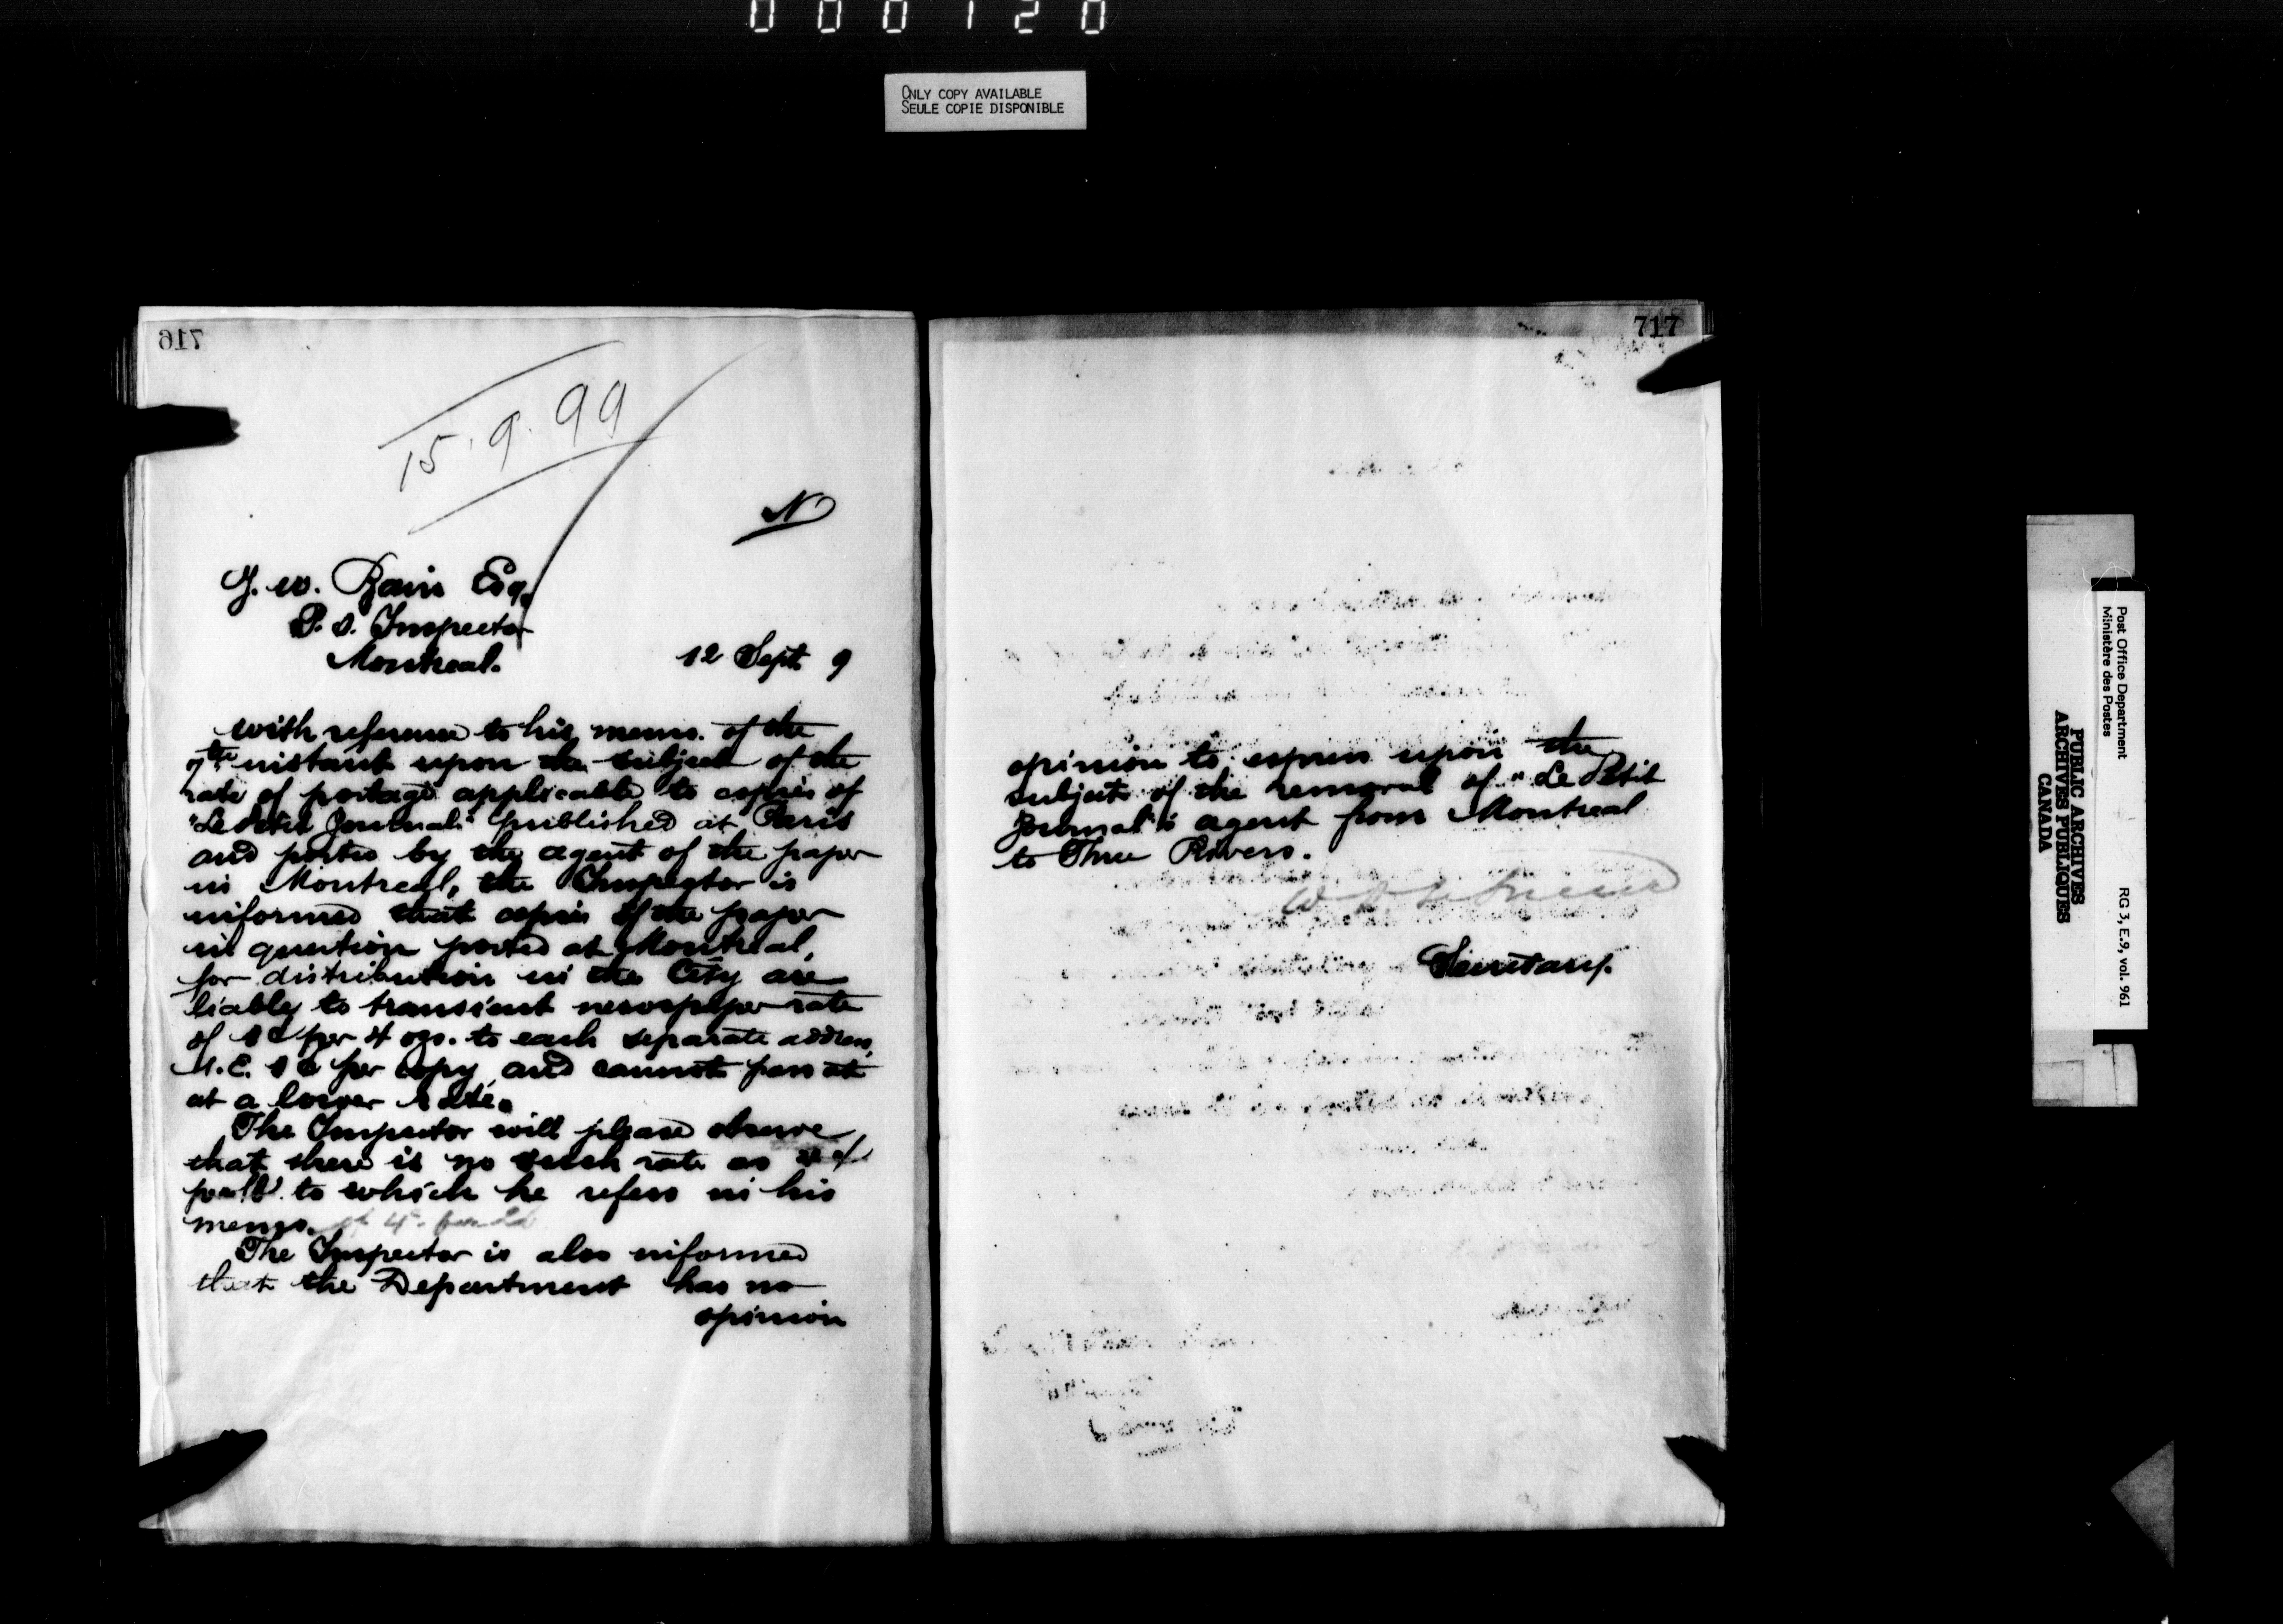 000720
ONLY COPY AVAILABLE
SEULE COPIE DISPONIBLE
716
15.9.99
N
J. W. Bain Esq.
P. O. Inspector
Montreal.
12 Sept 9
With reference to his memo. of the
7th instant upon the subject of the
rate of postage applicable to copies of
"Le Petit Journal" published at Paris
and posted by the agent of the paper
in Montreal, the Inspector is
informed that copies of the paper
in question posted at Montreal,
for distribution in the City are
liable to transient newspaper rate
of 1¢ per 4 ozs. to each separate address,
i.e. 1¢ per copy, and cannot pass at
at a lower rate.
The Inspector will please observe
that there is no such rate as
per lb. to which he refers in his
memo.
The Inspector is also informed
that the Department has no
opinion
717
opinion to express upon the
subject of the removal of "Le Petit
Journal's agent from Montreal
to Three Rivers.
W. D.
Secretary.
Post Office Department
Ministère des Postes
RG 3, E.9, vol. 961
PUBLIC ARCHIVES
ARCHIVES PUBLIQUES
CANADA